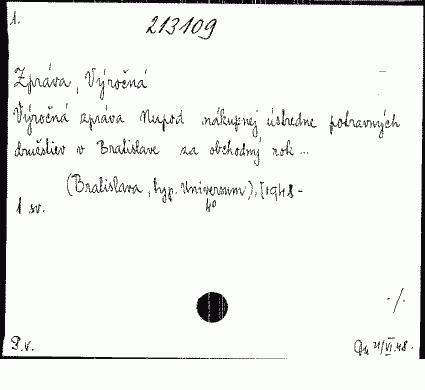 1.
213109
Zpráva, Výročná
Výročná zpráva Nupod nákupnej ústredne potravných
družstiev v Bratislave za obchodný rok ...
(Bratislava, typ. Universum), [1948 -
4°
1 sv.
./.
P.v.
21/VI.48.